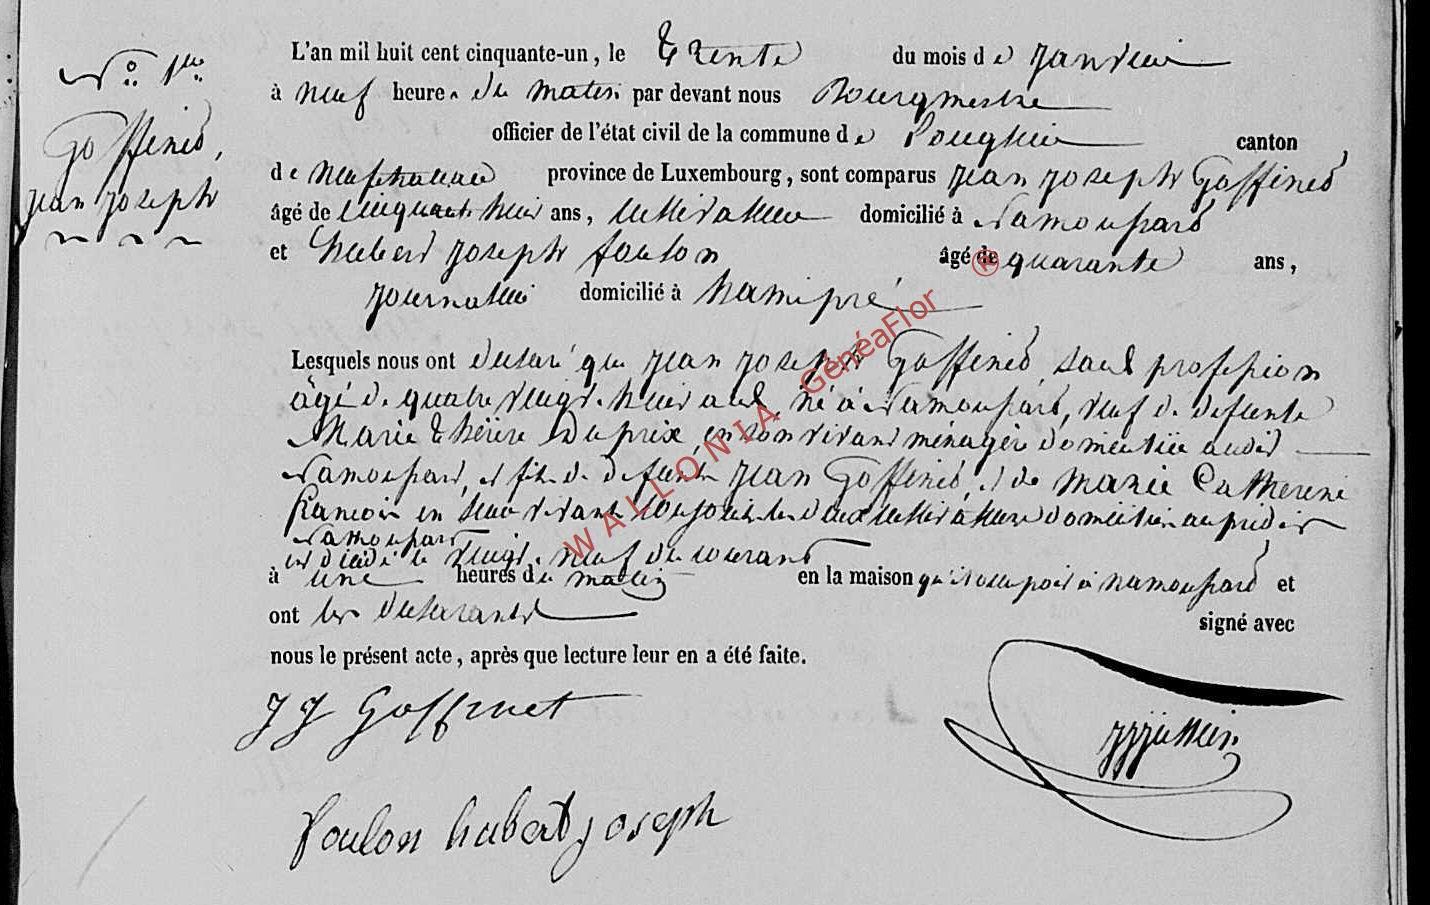 N° 1er
Goffinet,
Jean Joseph
L'an mil huit cent cinquante-un, le Trente du mois de Janvier
à neuf heures du matin par devant nous Bourgmestre
officier de l'état civil de la commune de Longlier canton
de Neufchateau province de Luxembourg, sont comparus Jean Joseph Goffinet
âgé de cinquante huit ans, cultivateur domicilié à Namoussart
et hubert Joseph foulon âgé de quarante ans,
Journalier domicilié à hamipré
Lesquels nous ont déclaré que Jean Joseph Goffinet, sans profession
âgé de quatre vingt-huit ans, né à Namoussart, veuf de defunte
Marie Thérèse Duprix, en son vivant ménagère domiciliée audit
Namoussart, et fils de defunts Jean Goffinet, et de Marie Catherine
francois en leur vivant cultivateurs domiciliés audit
Namoussart
est décédé le vingt-neuf du courant
à une heures du matin en la maison qu'il occupoit à namoussart et
ont les declarants signé avec
nous le présent acte, après que lecture leur en a été faite.
J J Goffinet
foulon hubert joseph
WALLONIA GénéaFlor ®